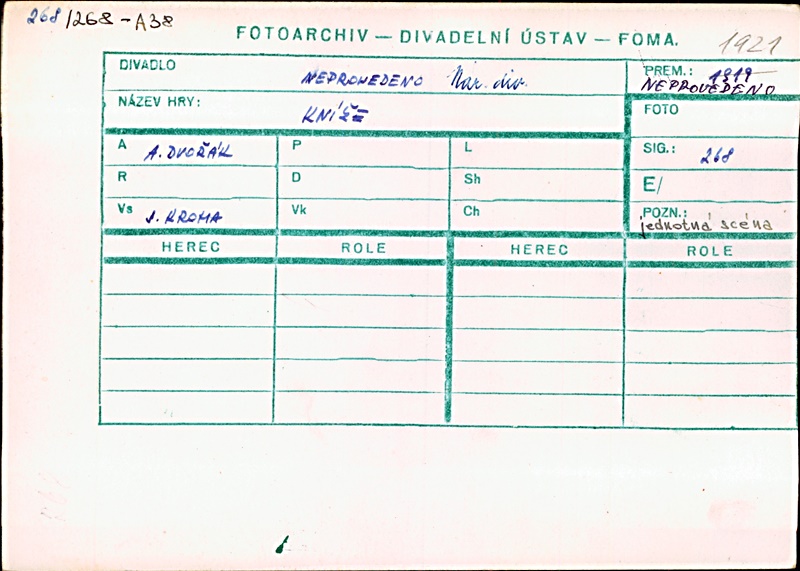 268/268-A38
FOTOARCHIV — DIVADELNÍ ÚSTAV — FOMA.
1921
DIVADLO NEPROVEDENO Nár. div.
PREM.: 1919
NEPROVEDENO
NÁZEV HRY: KNÍŽE
FOTO
A A. DVOŘÁK P L
SIG.: 268
R D Sh
E/
Vs J. KROHA Vk Ch
POZN.: jednotná scéna
HEREC ROLE HEREC ROLE